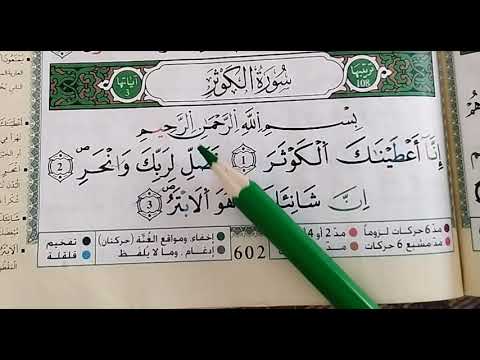 ترتيبها 108
سُورَةُ الكَوْثَرِ
آياتها 3
بِسْمِ اللَّهِ الرَّحْمَنِ الرَّحِيمِ
إِنَّا أَعْطَيْنَاكَ الْكَوْثَرَ ① فَصَلِّ لِرَبِّكَ وَانْحَرْ ②
إِنَّ شَانِئَكَ هُوَ الْأَبْتَرُ ③
مدّ 6 حركات لزوماً
مدّ مشبع 6 حركات
602
إخفاء، ومواقع الغُنَّة (حركتان)
إدغام، وما لا يُلفظ
تفخيم
قلقلة